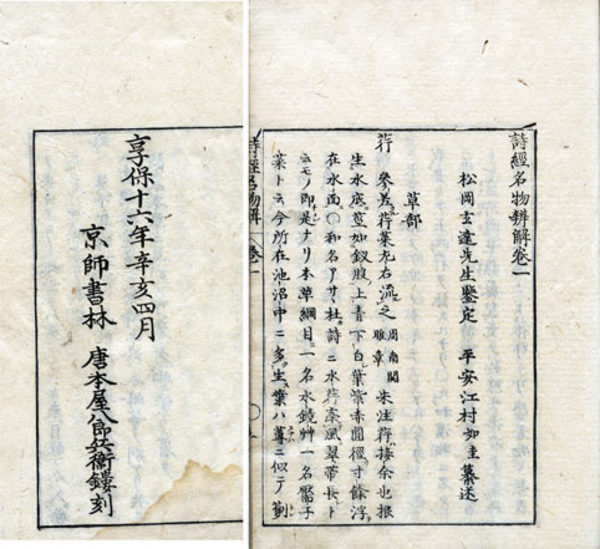 詩經名物辨解卷一
松岡玄達先生鑒定 平安江村如圭纂述
草部
荇 參差荇菜左右流之 周南關雎章 朱注荇接余也根
生水底莖如釵股上青下白葉紫赤圓徑寸餘浮
在水面〇和名アサヽ杜詩ニ水荇牽風翠帶長ト
云モノ即是ナリ本草綱目一名水鏡艸一名靨子
菜トス今所在池沼中ニ多生葉ハ蓴ニ似テ
詩經名物解 卷一
享保十六年辛亥四月
京師書林 唐本屋八郎兵衞鐫刻